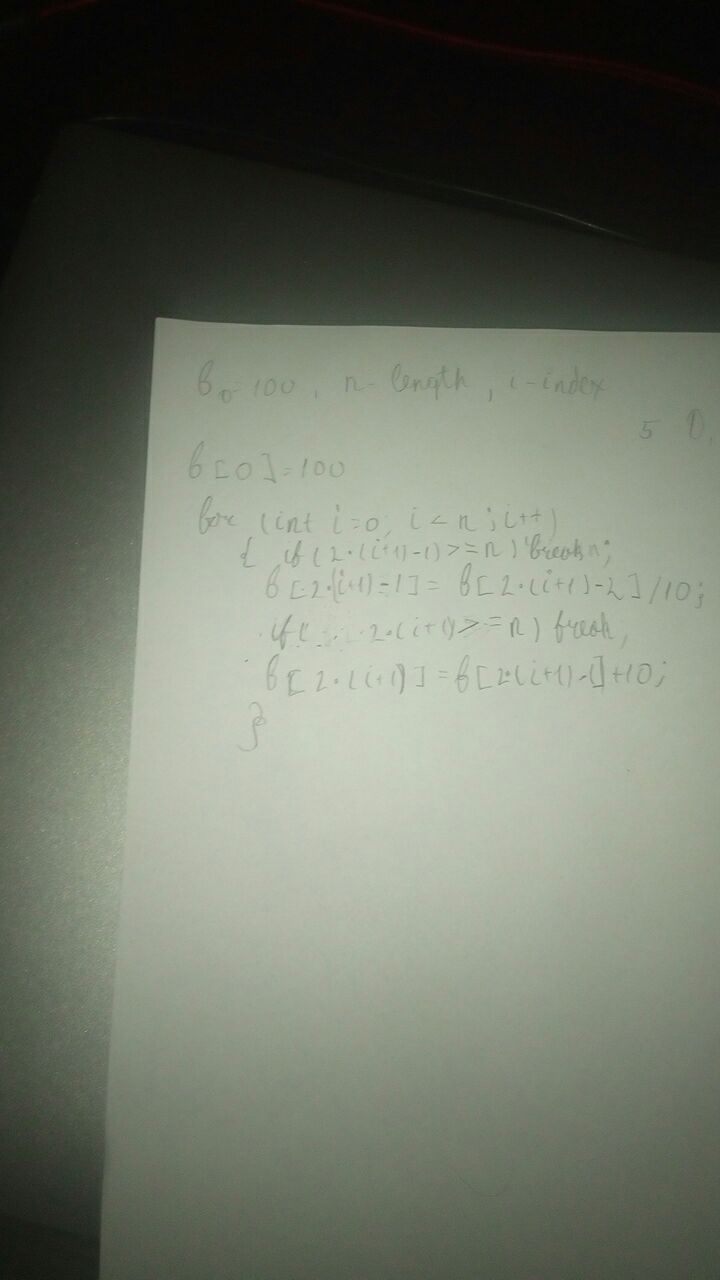 b₀=100, n-length, i-index
5
b[0]=100
for (int i=0, i<n; i++)
{ if(2·(i+1)-1)>=n) break;
b[2·(i+1)-1]= b[2·(i+1)-2]/10;
if( 2·(i+1)>=n) break;
b[2·(i+1)]=b[2·(i+1)-1]+10;
}